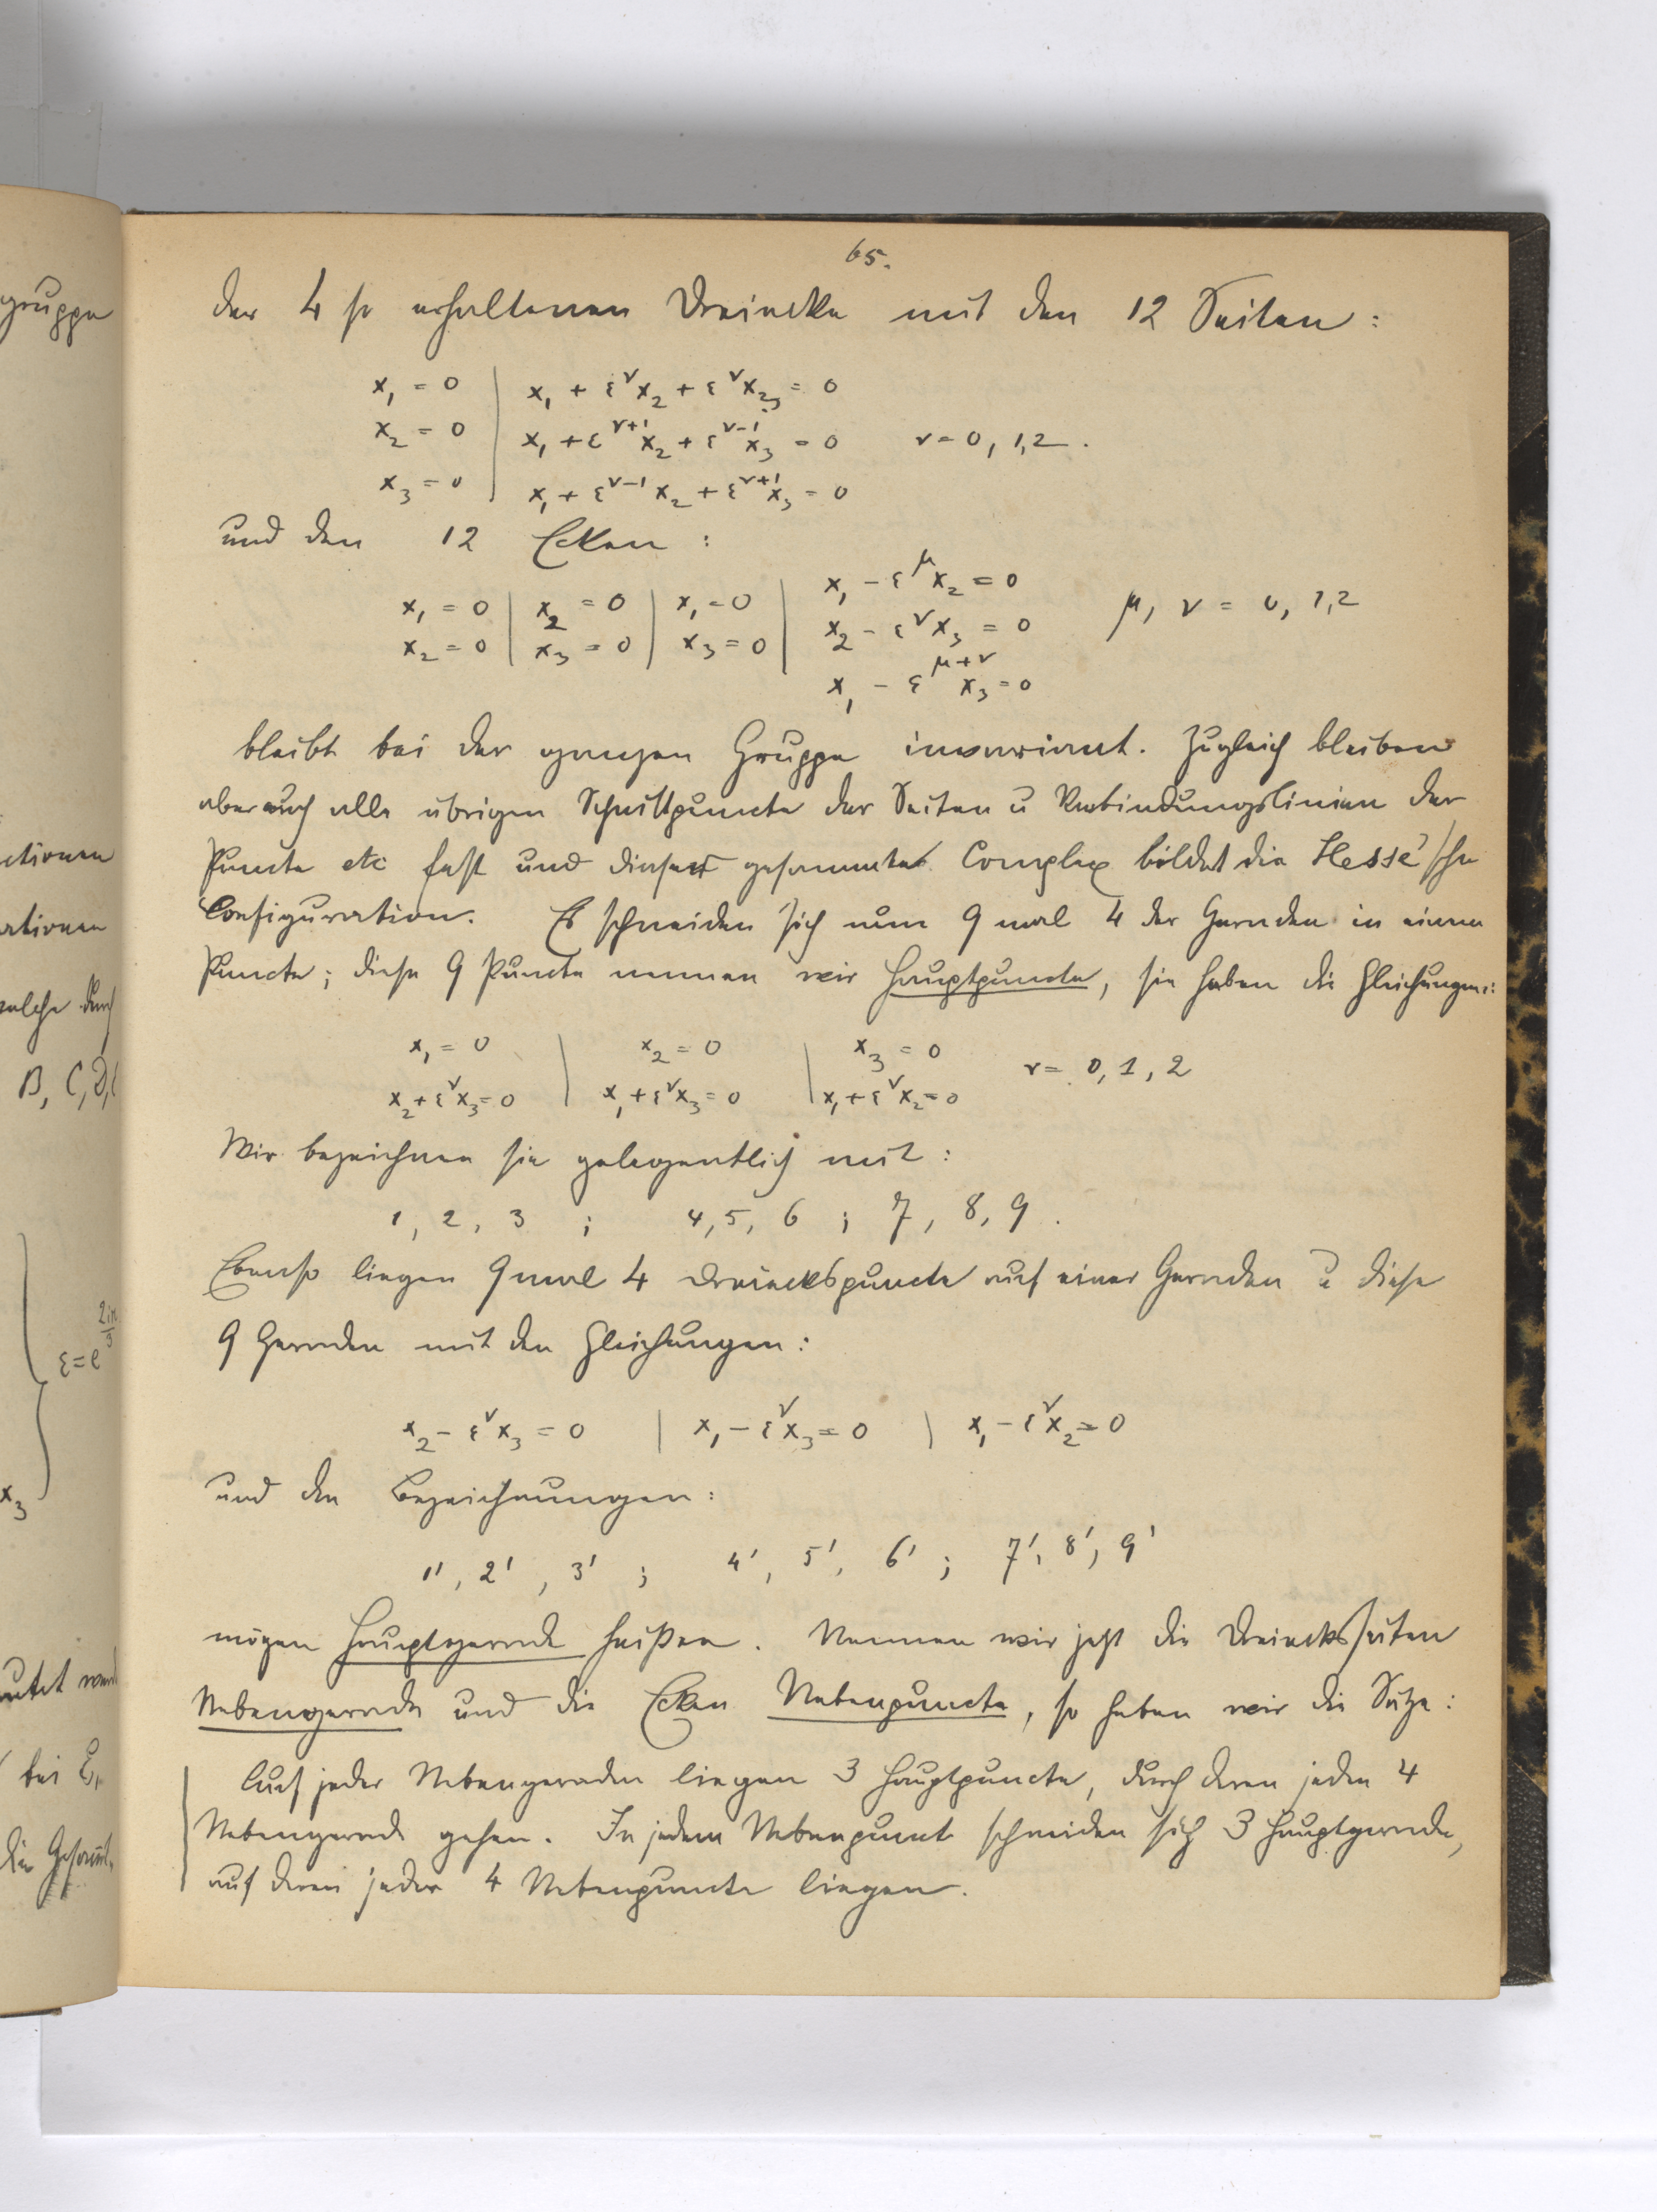 65.
der 4 so erhaltenen Dreiecke mit den 12 Seiten:
x₁ = 0 | x₁ + ε^ν x₂ + ε^ν x₃ = 0
x₂ = 0 | x₁ + ε^{ν+1} x₂ + ε^{ν-1} x₃ = 0 ν = 0, 1, 2.
x₃ = 0 | x₁ + ε^{ν-1} x₂ + ε^{ν+1} x₃ = 0
und den 12 Ecken:
x₁ - ε^μ x₂ = 0
x₁ = 0 | x₂ = 0 | x₁ = 0 | x₂ - ε^ν x₃ = 0 μ, ν = 0, 1, 2
x₂ = 0 | x₃ = 0 | x₃ = 0 |
x₁ - ε^{μ+ν} x₃ = 0
bleibt bei der ganzen Gruppe invariant. Zugleich bleiben
aber auch alle übrigen Schnittpuncte der Seiten u Verbindungslinien der
Puncte etc fest und dieser gesammte Complex bildet die Hesse'sche
Configuration. Es schneiden sich nun 9 mal 4 der Geraden in einem
Puncte; diese 9 Puncte nennen wir Hauptpuncte, sie haben die Gleichungen:
x₁ = 0 | x₂ = 0 | x₃ = 0 ν = 0, 1, 2
x₂ + ε^ν x₃ = 0 | x₁ + ε^ν x₃ = 0 | x₁ + ε^ν x₂ = 0
Wir bezeichnen sie gelegentlich mit:
1, 2, 3 ; 4, 5, 6 ; 7, 8, 9.
Ebenso liegen 9 mal 4 Dreieckspuncte auf einer Geraden u diese
9 Geraden mit den Gleichungen:
x₂ - ε^ν x₃ = 0 | x₁ - ε^ν x₃ = 0 | x₁ - ε^ν x₂ = 0
und den Bezeichnungen:
1', 2', 3' ; 4', 5', 6' ; 7', 8', 9'
mögen Hauptgerade heißen. Nennen wir jetzt die Dreiecksseiten
Nebengerade und die Ecken Nebenpuncte, so haben wir die Sätze:
Auf jeder Nebengeraden liegen 3 Hauptpuncte, durch deren jeden 4
Nebengerade gehen. In jedem Nebenpunct schneiden sich 3 Hauptgerade,
auf deren jeder 4 Nebenpuncte liegen.